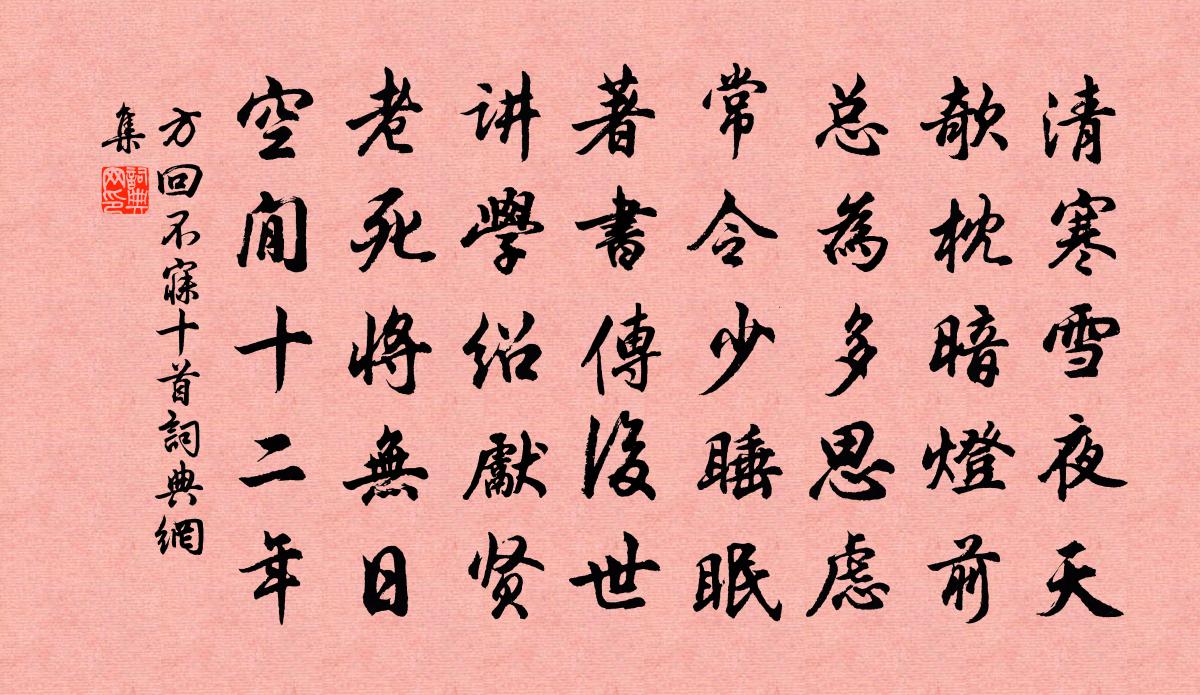 清寒雪夜天
欹枕暗燈前
总為多思虑
常令少睡眠
著書傳後世
讲學绍獻贤
老死將無日
空閒十二年
方回不寐十首詞典網
集
詞典网印